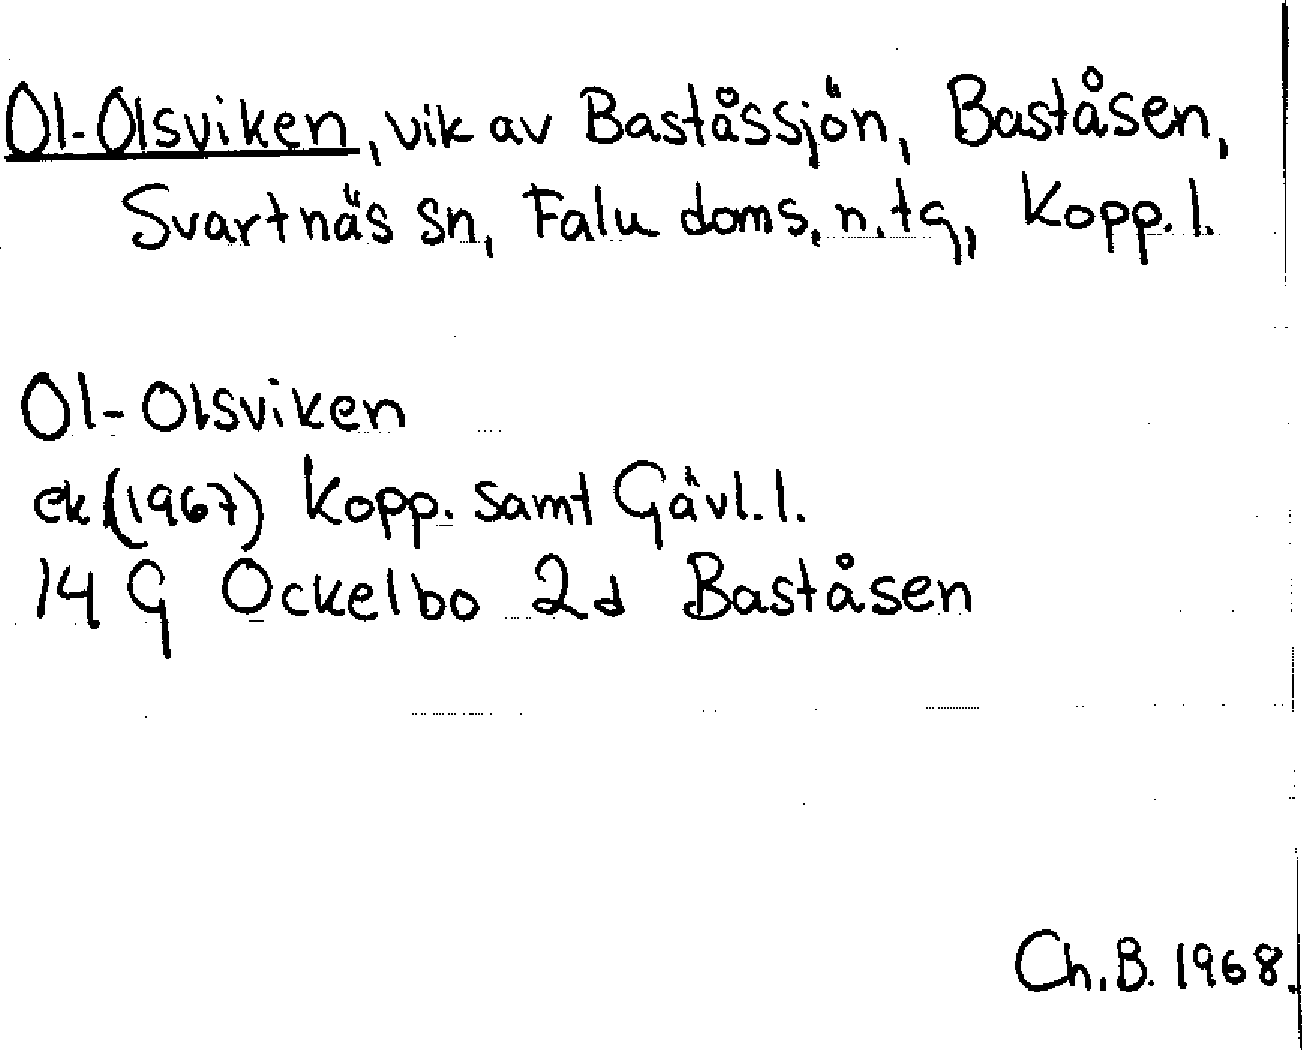 Ol-Olsviken, vik av Baståssjön, Baståsen,
Svartnäs sn, Falu doms. n. tg, Kopp. l.
Ol-Olsviken
ek (1967) Kopp. samt Gävl. l.
14 G Ockelbo 2d Baståsen
Ch. B. 1968.